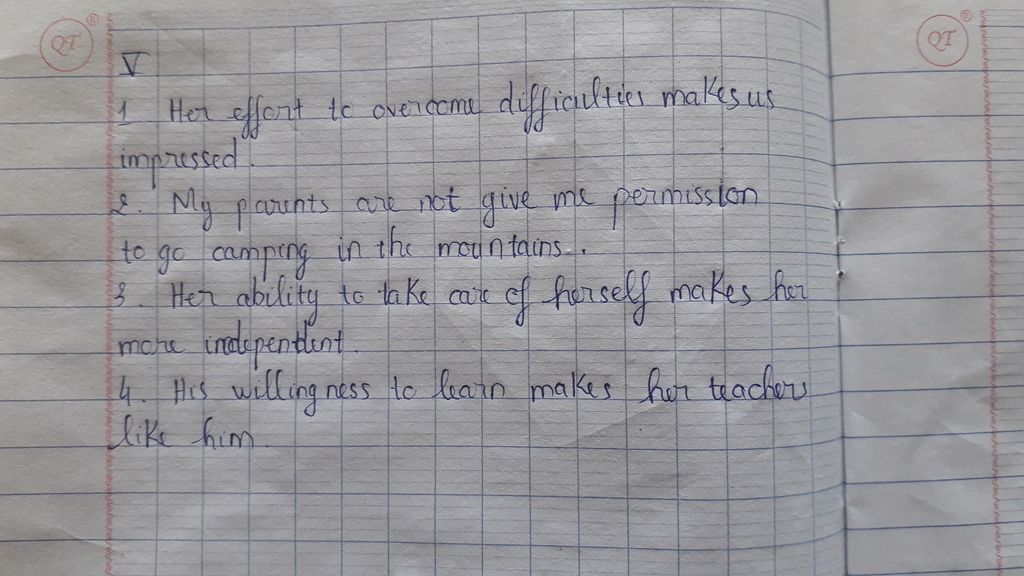 QT ® QT ®
V
1 Her effort to overcome difficulties makes us
impressed.
2. My parents are not give me permission
to go camping in the mountains.
3. Her ability to take care of herself makes her
more independent.
4. His willingness to learn makes her teachers
like him.